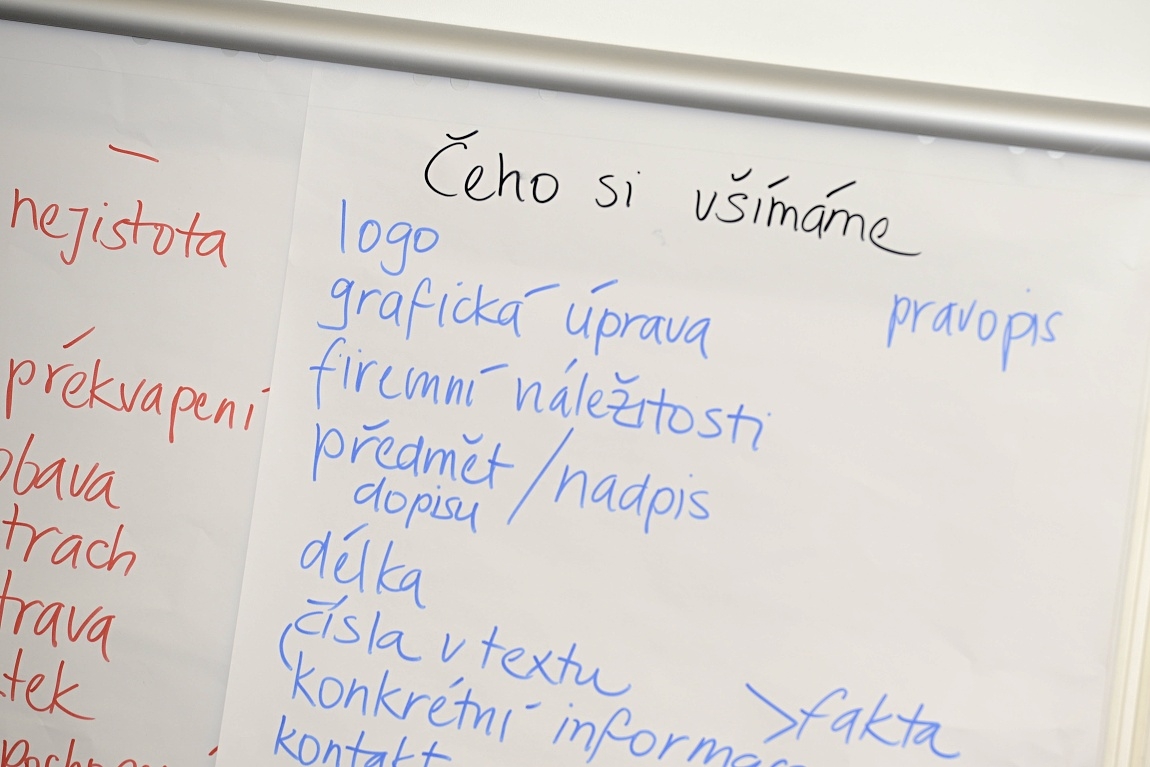 nejistota
překvapení
obava
trach
trava
tek
Čeho si všímáme
logo
grafická úprava
pravopis
firemní náležitosti
předmět / nadpis
dopisu
délka
čísla v textu
(konkrétní informac
> fakta
kontakt